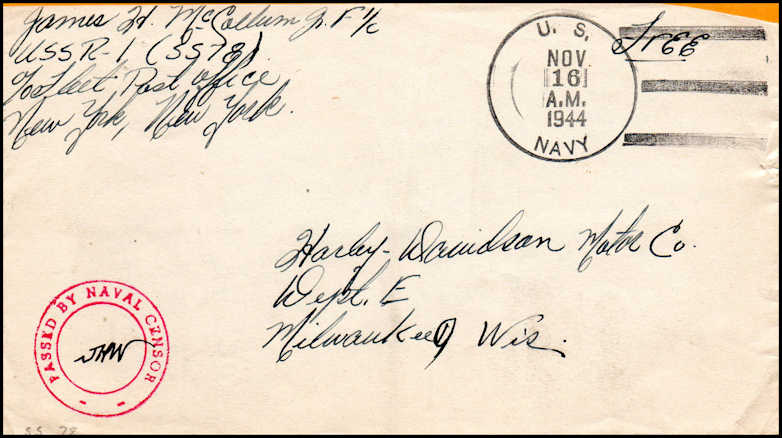 James H. McCollum Jr. F 1/c
USS R-1 (SS78)
℅ Fleet Post Office
New York, New York.
U. S.
NOV
16
A.M.
1944
NAVY
Free
Harley-Davidson Motor Co.
Dept. E
Milwaukee, Wis.
PASSED BY NAVAL CENSOR
SS 78